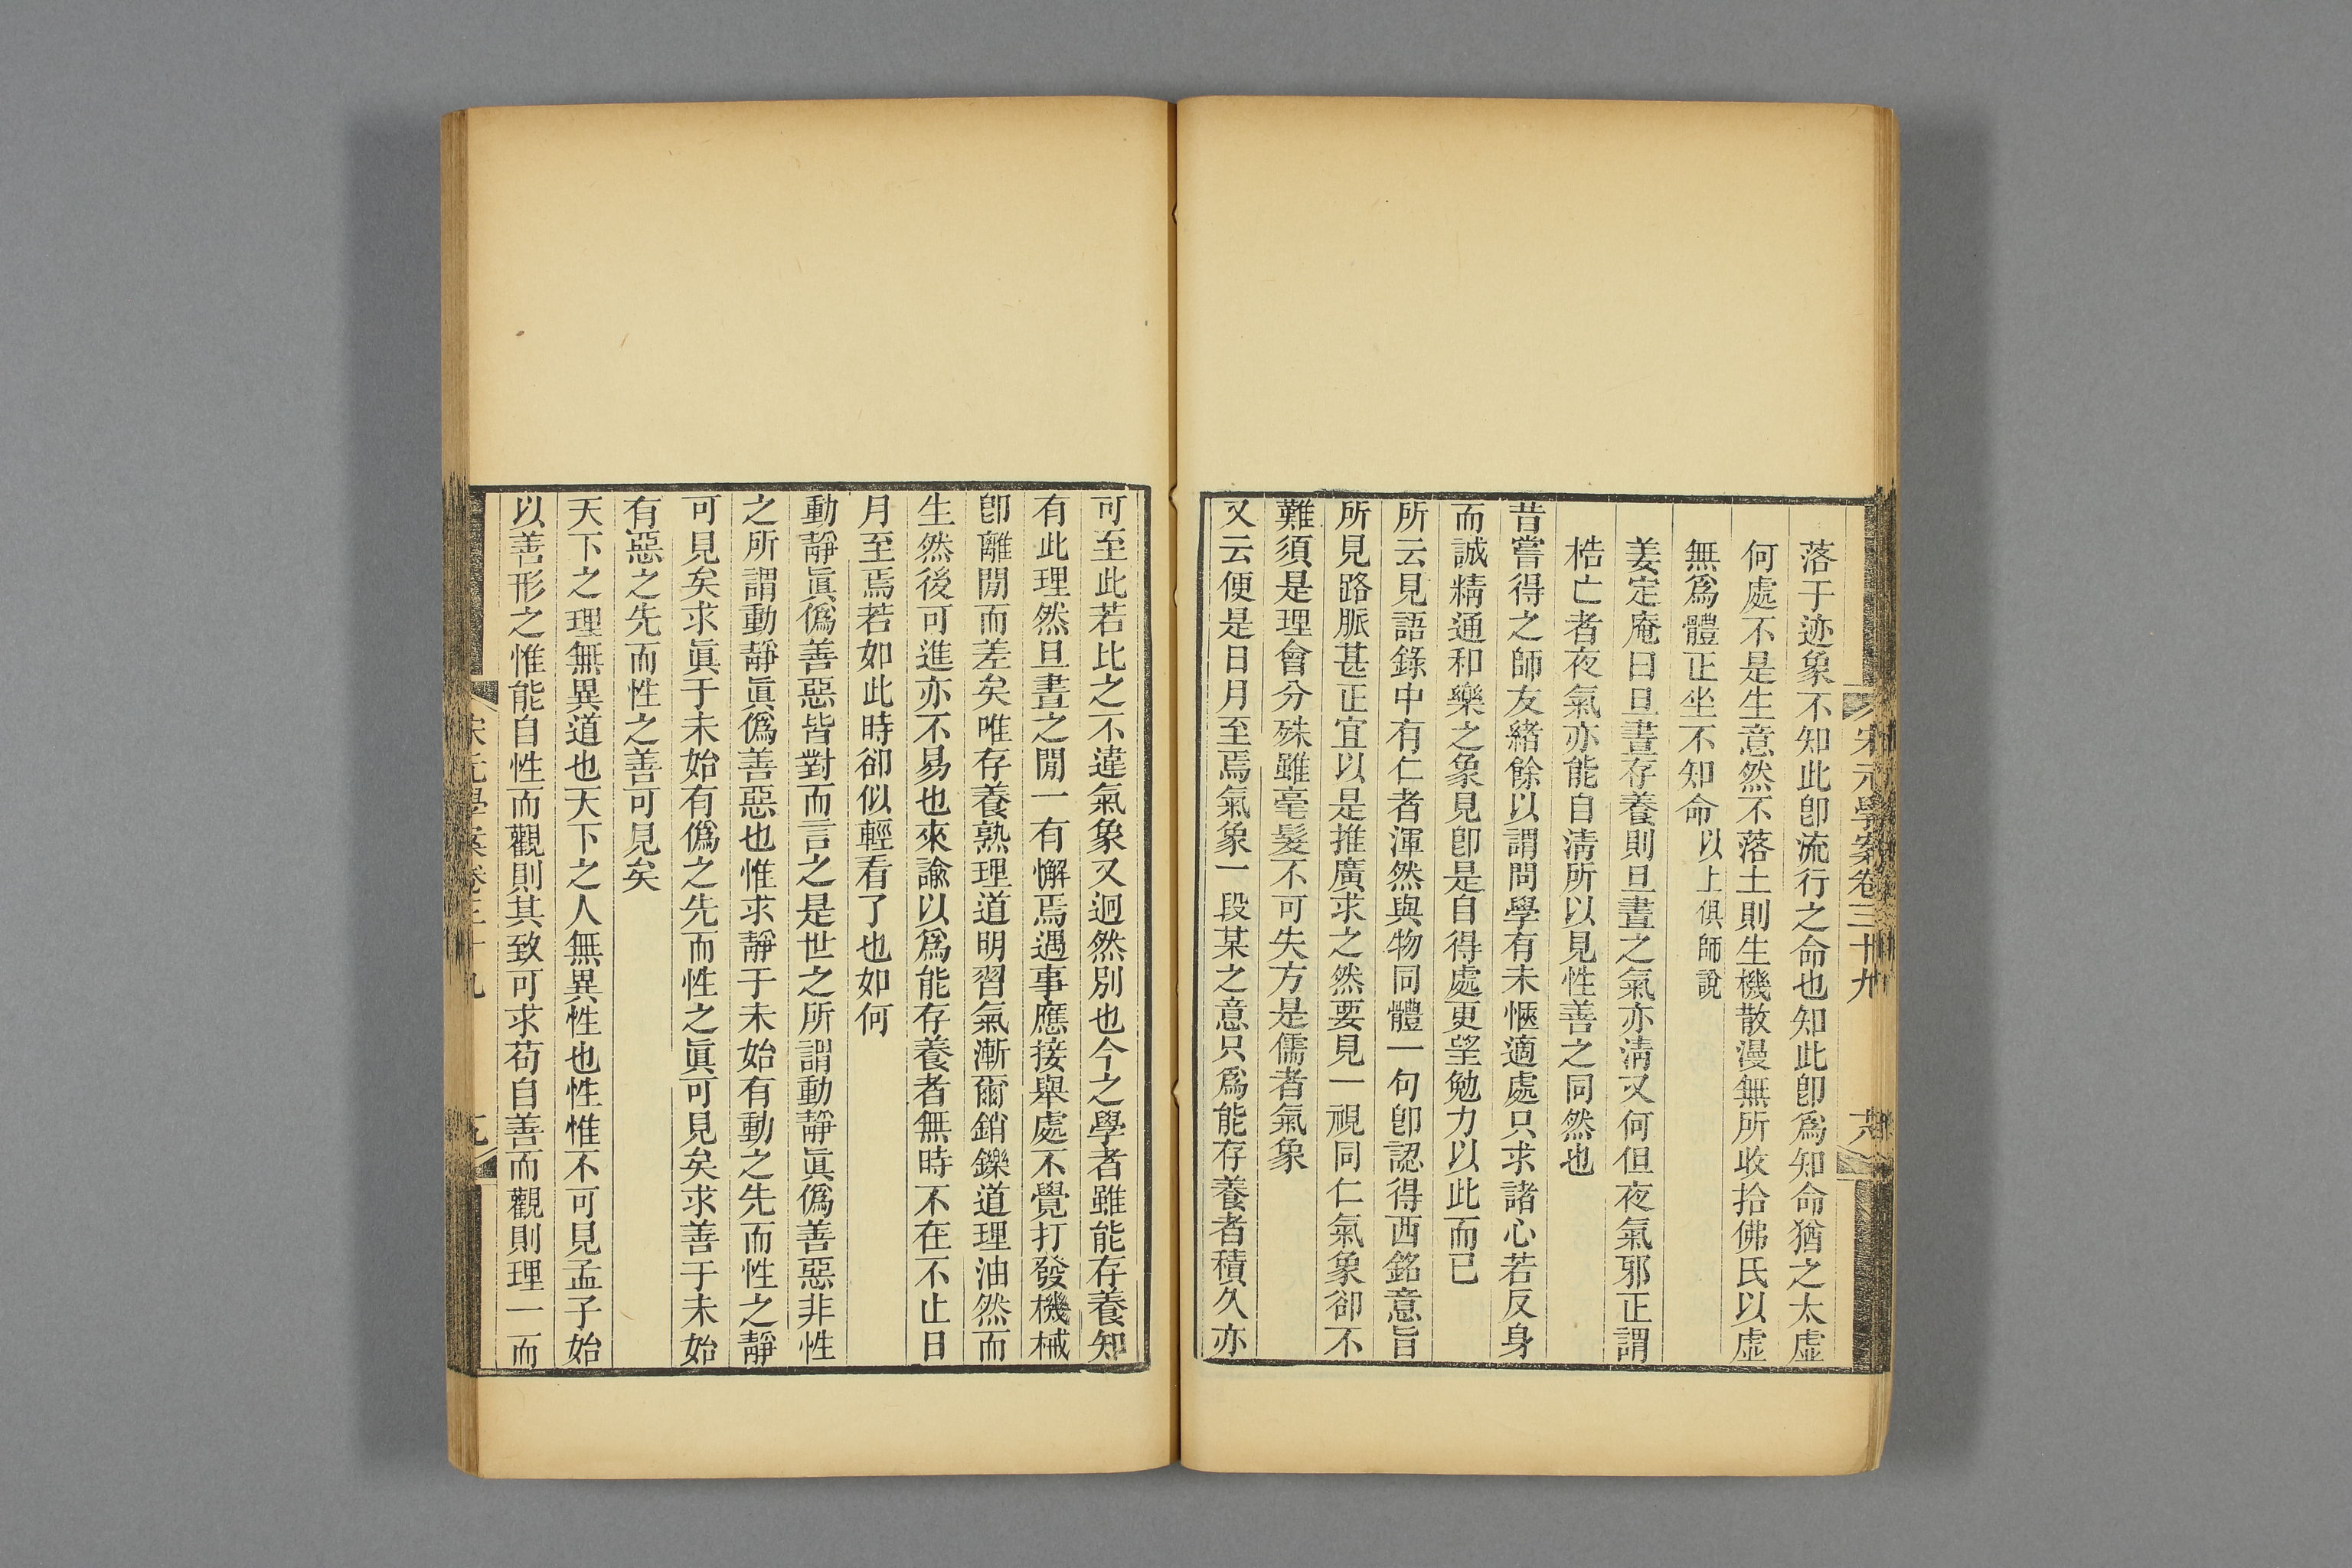 宋元學案卷三十九
落于迹象不知此卽流行之命也知此卽爲知命猶之太虛
何處不是生意然不落土則生機散漫無所收拾佛氏以虛
無爲體正坐不知命以上俱師說
姜定庵曰旦晝存養則旦晝之氣亦淸又何但夜氣邪正謂
梏亡者夜氣亦能自淸所以見性善之同然也
昔嘗得之師友緖餘以謂問學有未愜適處只求諸心若反身
而誠精通和樂之象見卽是自得處更望勉力以此而已
所云見語錄中有仁者渾然與物同體一句卽認得西銘意旨
所見路脈甚正宜以是推廣求之然要見一視同仁氣象卻不
難須是理會分殊雖毫髮不可失方是儒者氣象
又云便是日月至焉氣象一段某之意只爲能存養者積久亦
可至此若比之不違氣象又迥然別也今之學者雖能存養知
有此理然旦晝之閒一有懈焉遇事應接舉處不覺打發機械
卽離閒而差矣唯存養熟理道明習氣漸爾銷鑠道理油然而
生然後可進亦不易也來諭以爲能存養者無時不在不止日
月至焉若如此時卻似輕看了也如何
動靜眞僞善惡皆對而言之是世之所謂動靜眞僞善惡非性
之所謂動靜眞僞善惡也惟求靜于未始有動之先而性之靜
可見矣求眞于未始有僞之先而性之眞可見矣求善于未始
有惡之先而性之善可見矣
天下之理無異道也天下之人無異性也性惟不可見孟子始
以善形之惟能自性而觀則其致可求苟自善而觀則理一而
宋元學案卷三十九